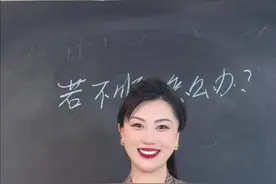 若不怎么办?